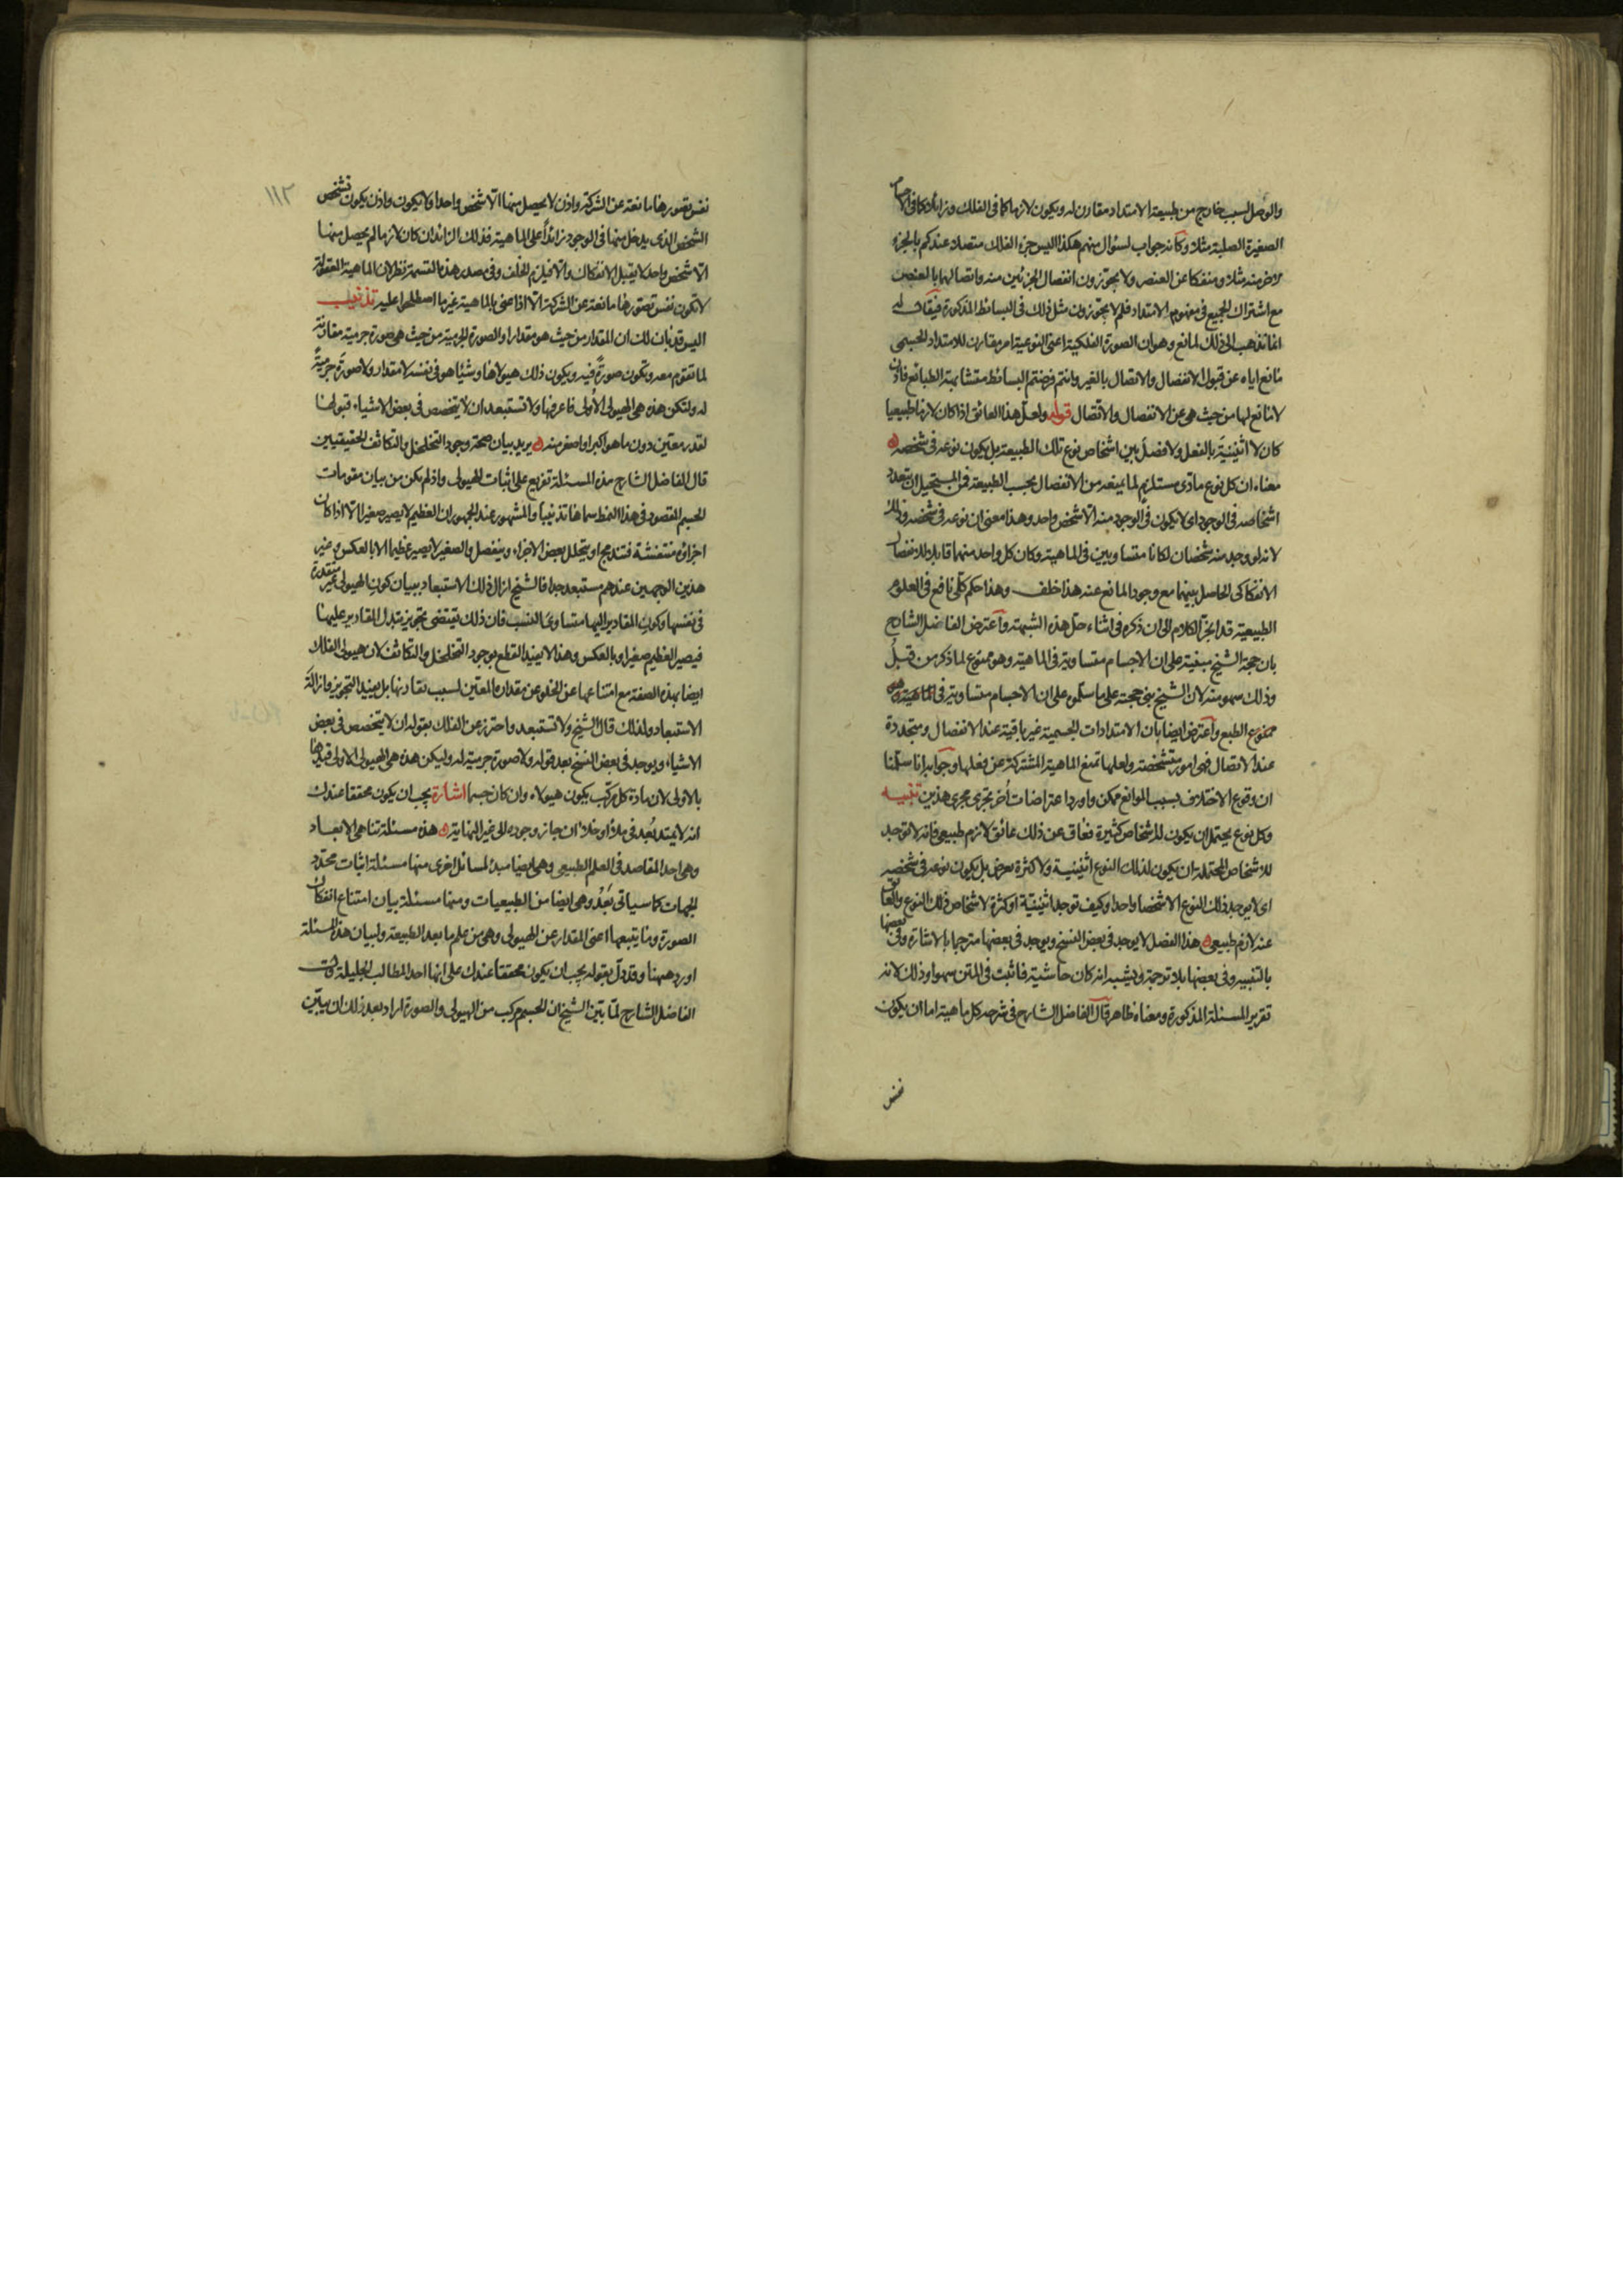 والوصل لسبب خارج من طبيعة الامتداد مقارن له ويكون لازما كما في الفلك وزائلا كما في الاجسام
الصغيرة الصلبة مثلا وكأنه جواب لسؤال منهم هكذا اليس جزء الفلك متصلا عندكم بالجزء
الاخر منه مثلا ومنفكا عن العنصر ولا يجوزون انفصال الجزئين منه واتصالهما بالعنصر
مع اشتراك الجميع في مفهوم الامتداد فلم لا يجوزون مثل ذلك في البسائط المذكورة فيقال له
انما نذهب الى ذلك لمانع وهو ان الصورة الفلكية اعني النوعية امر مقارن للامتداد الجسمي
مانع اياه عن قبول الانفصال والاتصال بالغير وانتم فرضتم البسائط متشابهة الطبائع فاذن
لا مانع لها من حيث هي عن الانفصال والاتصال قوله ولعل هذا العائق اذا كان لازما طبيعيا
كان لا اثنينية بالفعل ولا فصل بين اشخاص نوع تلك الطبيعة بل يكون نوعه في شخصه
معناه ان كل نوع مادي مستلزم لما يمنعه من الانفصال بحسب الطبيعة فمن المستحيل ان يتعدد
اشخاصه في الوجود اي لا يكون في الوجود منه الا شخص واحد وهذا معنى ان نوعه في شخصه وذلك
لانه لو وجد منه شخصان لكانا متساويين في الماهية وكان كل واحد منهما قابلا للانفصال
الانفكاكي الحاصل بينهما مع وجود المانع عنه هذا خلف وهذا حكم كلي نافع في العلوم
الطبيعية قد انجر الكلام الى ان ذكره في اثناء حل هذه الشبهة واعترض الفاضل الشارح
بان حجة الشيخ مبنية على ان الاجسام متساوية في الماهية وهو ممنوع لما ذكر من قبل
وذلك سهو منه لان الشيخ بنى حجته على ما سلموه على ان الاجسام متساوية في الماهية وهو
ممنوع الطبع واعترض ايضا بان الامتدادات الجسمية غير باقية عند الانفصال ومتجددة
عند الاتصال فهي امور متشخصة ولعلها تمنع الماهية المشتركة عن فعلها وجوابه انا سلمنا
ان وقوع الاختلاف بسبب الموانع ممكن واورد اعتراضات أخر تجري مجرى هذين تنبيه
وكل نوع يحتمل ان يكون له اشخاص كثيرة فعاق عن ذلك عائق لازم طبيعي فانه لا توجد
للاشخاص المحتملة ان يكون لذلك النوع اثنينية ولا كثرة بعرض بل يكون نوعه في شخصه
اي لا يوجد ذلك النوع الا شخصا واحدا وكيف توجد اثنينية او كثرة لاشخاص ذلك النوع والعائق
عنه لازم طبيعي هذا الفصل لا يوجد في بعض النسخ ويوجد في بعضها مترجما بالاشارة وفي بعضها
بالتنبيه وفي بعضها بلا ترجمة ويشبه انه كان حاشية فاثبت في المتن سهوا وذلك لانه
تقرير المسئلة المذكورة ومعناه ظاهر قال الفاضل الشارح في شرحه كل ماهية اما ان يكون
نفس
١١٢
نفس تصورها مانعة عن الشركة واذن لا يحصل منها الا شخص واحد او لا يكون واذن يكون تشخص
الشخص الذي يدخل منها في الوجود زائدا على الماهية فذلك الزائد ان كان لازما لم يحصل منها
الا شخص واحد لا يقبل الانفكاك والا فيلزم الخلف وفي صدر هذه القسمة نظر لان الماهية المعقولة
لا تكون نفس تصورها مانعة عن الشركة الا اذا عنى بالماهية غير ما اصطلحوا عليه تذنيب
اليس قد بان لك ان المقدار من حيث هو مقدار او الصورة الجرمية من حيث هي صورة جرمية مقارنة
لما تقوم معه وتكون صورة فيه ويكون ذلك هيولاها وشيئا هو في نفسه لا مقدار ولا صورة جرمية
له ولتكن هذه هي الهيولى الأولى فاعرفها ولا تستبعد ان لا يتخصص في بعض الاشياء قبولها
لقدر معين دون ما هو اكبر او اصغر منه يريد بيان صحة وجود التخلخل والتكاثف الحقيقيين
قال الفاضل الشارح هذه المسئلة تفريع على اثبات الهيولى واذ لم يكن من بيان مقومات
الجسم المقصود في هذا النمط سماها تذنيبا والمشهور عند الجمهور ان العظيم لا يصير صغيرا الا اذا كان
اجزاؤه منتفشة فتندمج او يتحلل بعض الاجزاء وينفصل والصغير لا يصير عظيما الا بالعكس وغير
هذين الوجهين عندهم مستبعد جدا فالشيخ ازال ذلك الاستبعاد ببيان كون الهيولى غير متقدرة
في نفسها وكون المقادير اليها متساوي النسب فان ذلك يقتضي تجويز تبدل المقادير عليها
فيصير العظيم صغيرا وبالعكس وهذا لا يفيد القطع بوجود التخلخل والتكاثف لان هيولى الفلك
ايضا بهذه الصفة مع امتناعها عن الخلو عن مقدارها المعين لسبب يقارنها بل يفيد التجويز وازالة
الاستبعاد ولذلك قال الشيخ ولا تستبعد واحترز عن الفلك بقوله ان لا يتخصص في بعض
الاشياء ويوجد في بعض النسخ بعد قوله ولا صورة جرمية له وليكن هذه هي الهيولى الاولى قيدها
بالاولى لان مادة كل مركب يكون هيولاه وان كان جسما اشارة يجب ان يكون محققا عندك
انه لا يمتد بُعد في ملأ او خلا ان جاز وجوده الى غير النهاية هذه مسئلة تناهي الابعاد
وهي احد المقاصد في العلم الطبيعي وهي ايضا مبدء لمسائل اخرى منها مسئلة اثبات محدد
الجهات كما سياتي بَعدُ وهي ايضا من الطبيعيات ومنها مسئلة بيان امتناع انفكاك
الصورة وما يتبعها اعني المقدار عن الهيولى وهي من علم ما بعد الطبيعة ولبيان هذه المسئلة
اورد ههنا وقد دل بقوله يجب ان يكون محققا عندك على انها احد المطالب الجليلة
الفاضل الشارح لما بين الشيخ ان الجسم مركب من الهيولى والصورة اراد بعد ذلك ان يبين